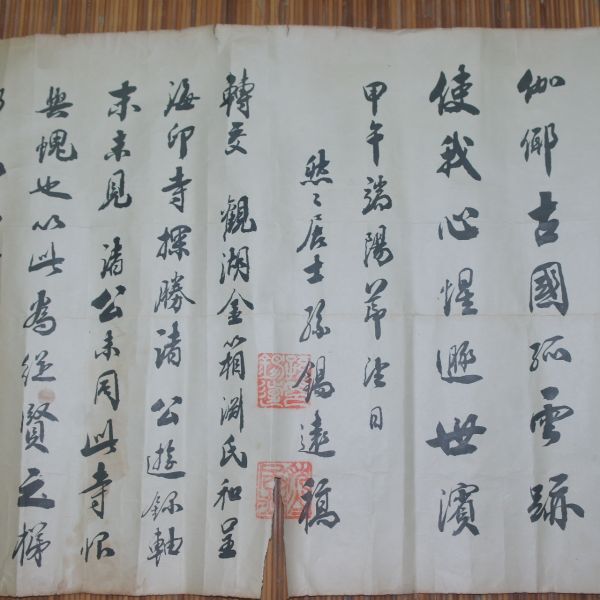 伽倻古國孤雲跡
使我心惺遯世濱
甲午端陽節望日
然々居士孫錫遠稿
轉交 觀湖金箱淵氏和呈
海印寺探勝諸公遊錄軸
末未見 諸公未同此寺恨
與愧也以此爲從賢之梯